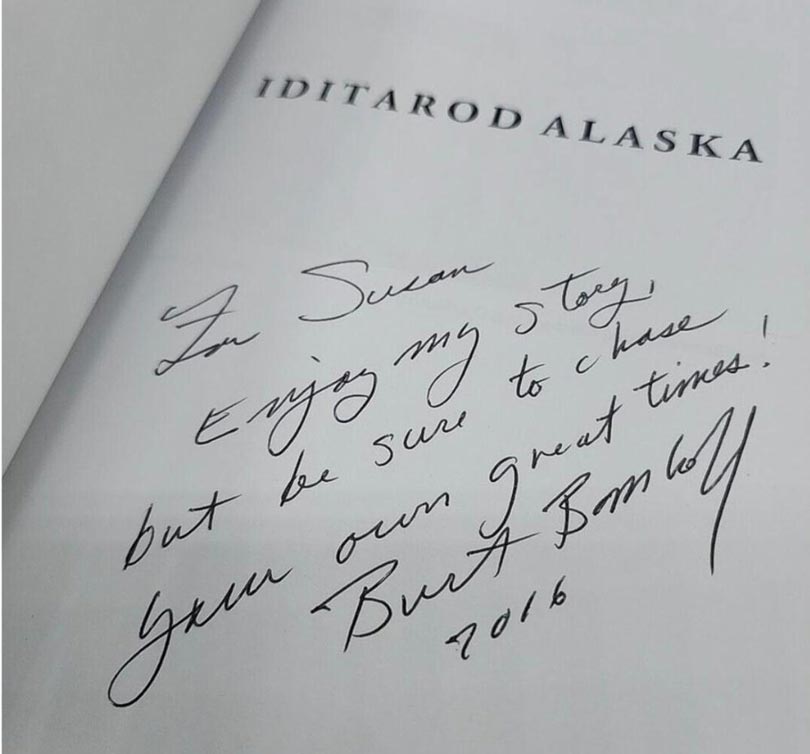 IDITAROD ALASKA
For Susan
Enjoy my story,
but be sure to chase
your own great times!
Burt Bomhoff
2016